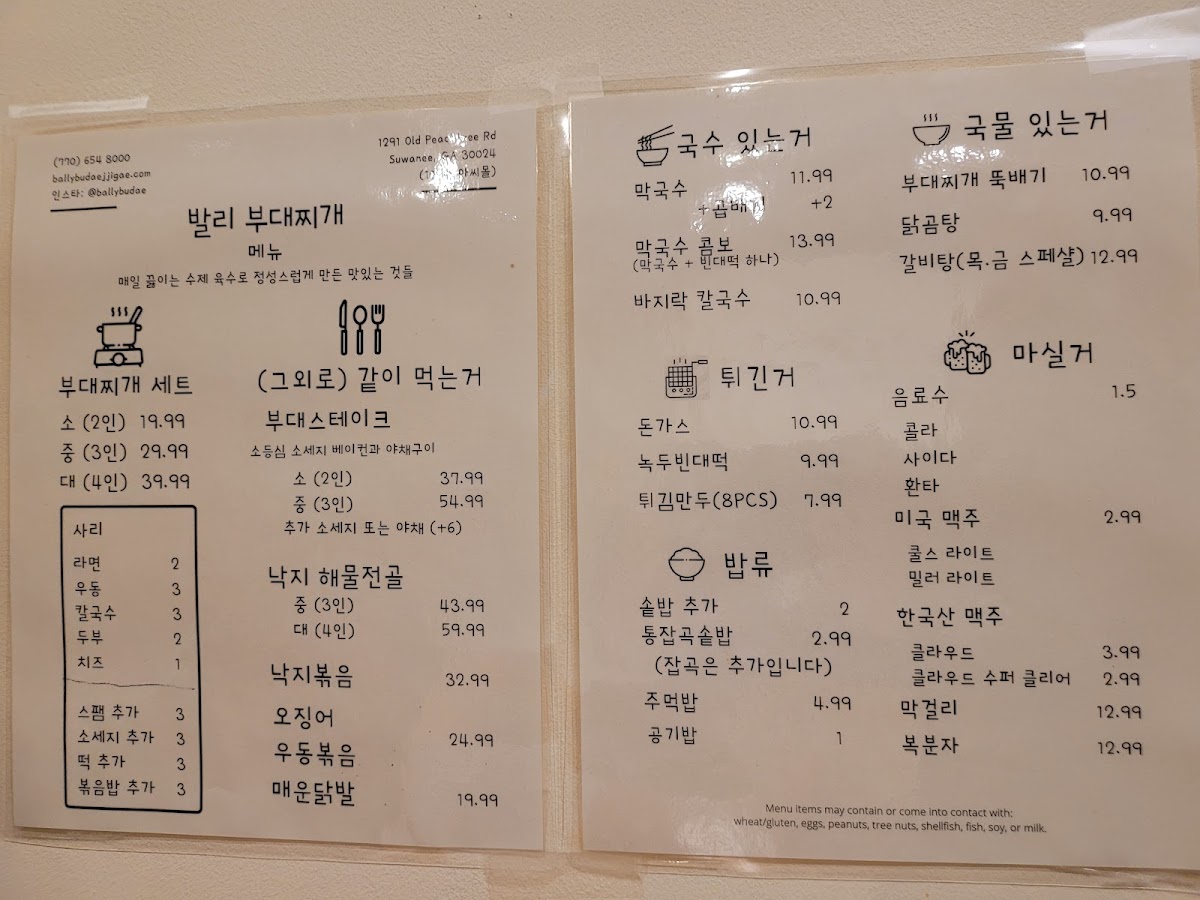 (770) 654 8000
ballybudaejjigae.com
인스타: @ballybudae
1291 Old Peachtree Rd
Suwanee, GA 30024
발리 부대찌개
메뉴
매일 끓이는 수제 육수로 정성스럽게 만든 맛있는 것들
부대찌개 세트
소 (2인) 19.99
중 (3인) 29.99
대 (4인) 39.99
사리
라면 2
우동 3
칼국수 3
두부 2
치즈 1
스팸 추가 3
소세지 추가 3
떡 추가 3
볶음밥 추가 3
(그외로) 같이 먹는거
부대스테이크
소등심 소세지 베이컨과 야채구이
소 (2인) 37.99
중 (3인) 54.99
추가 소세지 또는 야채 (+6)
낙지 해물전골
중 (3인) 43.99
대 (4인) 59.99
낙지볶음 32.99
오징어
우동볶음 24.99
매운닭발 19.99
국수 있는거
막국수 11.99
+곱배기 +2
막국수 콤보 13.99
(막국수 + 빈대떡 하나)
바지락 칼국수 10.99
튀긴거
돈가스 10.99
녹두빈대떡 9.99
튀김만두(8PCS) 7.99
밥류
솥밥 추가 2
통잡곡솥밥 2.99
(잡곡은 추가입니다)
주먹밥 4.99
공기밥 1
국물 있는거
부대찌개 뚝배기 10.99
닭곰탕 9.99
갈비탕(목.금 스페샬) 12.99
마실거
음료수 1.5
콜라
사이다
환타
미국 맥주 2.99
쿨스 라이트
밀러 라이트
한국산 맥주
클라우드 3.99
클라우드 수퍼 클리어 2.99
막걸리 12.99
복분자 12.99
Menu items may contain or come into contact with:
wheat/gluten, eggs, peanuts, tree nuts, shellfish, fish, soy, or milk.